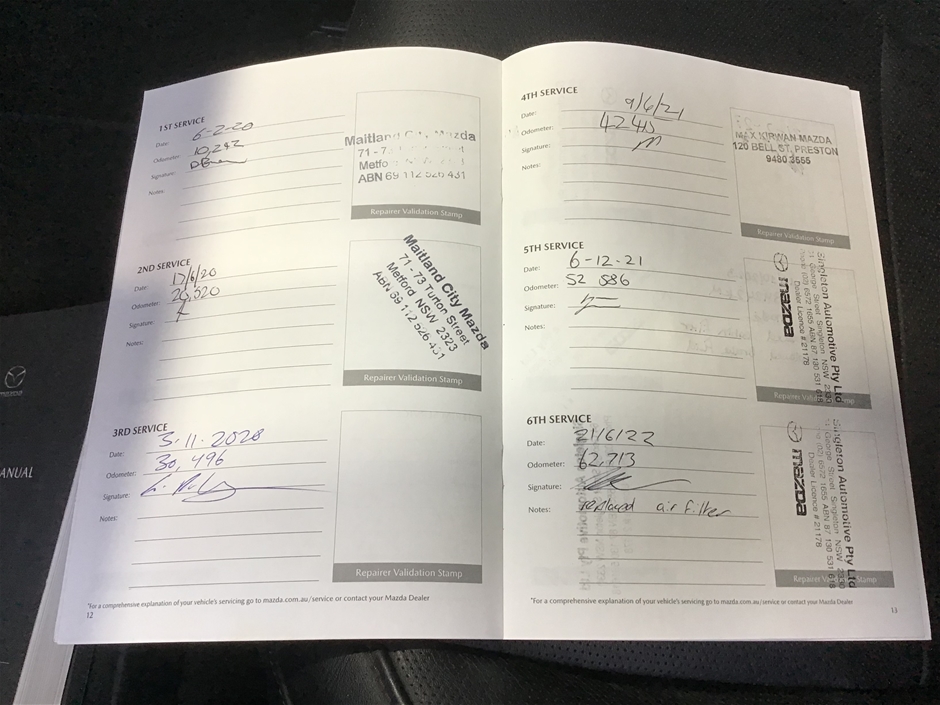 1ST SERVICE
Date: 6-2-20
Odometer: 10,242
Signature:
Notes:
Maitland City Mazda
71 - 7
Metfo
ABN 69 112 526 431
Repairer Validation Stamp
2ND SERVICE
Date: 17/6/20
Odometer: 20,520
Signature:
Notes:
Maitland City Mazda
71 - 73 Turton Street
Metford NSW 2323
ABN 69 112 526 431
Repairer Validation Stamp
3RD SERVICE
Date: 3.11.2020
Odometer: 30,496
Signature:
Notes:
Repairer Validation Stamp
*For a comprehensive explanation of your vehicle's servicing go to mazda.com.au/service or contact your Mazda Dealer
12
4TH SERVICE
Date: 9/6/21
Odometer:
Signature:
Notes:
MAX KIRWAN MAZDA
120 BELL ST, PRESTON
9480 2555
Repairer Validation Stamp
5TH SERVICE
Date: 6-12-21
Odometer: 52 586
Signature:
Notes:
mazda
Singleton Automotive Pty Ltd
George Street Singleton NSW
(02) 6572 1655 ABN 87 130 531 618
Dealer Licence # 21178
Repairer Validation Stamp
6TH SERVICE
Date: 21/6/22
Odometer: 62,713
Signature:
Notes: replaced air filter
mazda
Singleton Automotive Pty Ltd
George Street Singleton NSW
(02) 6572 1655 ABN 87 130 531 618
Dealer Licence # 21178
Repairer Validation Stamp
*For a comprehensive explanation of your vehicle's servicing go to mazda.com.au/service or contact your Mazda Dealer
13
ANUAL